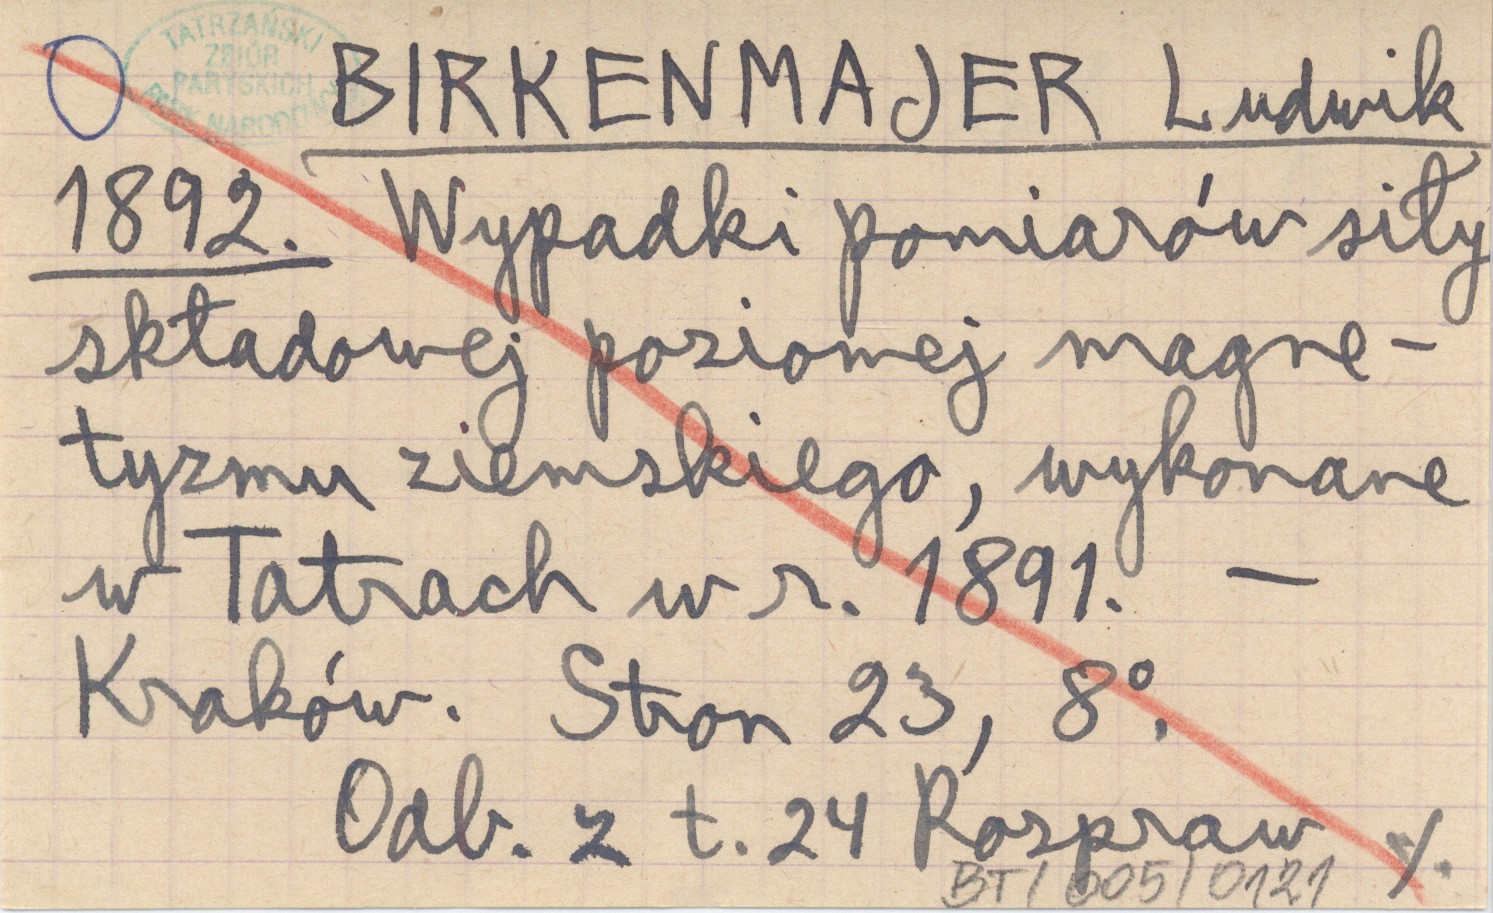 TATRZAŃSKI
ZBIÓR
PARYSKICH
PARK NARODOWY
BIRKENMAJER Ludwik
1892. Wypadki pomiarów siły
składowej poziomej magne-
tyzmu ziemskiego, wykonane
w Tatrach w r. 1891. —
Kraków. Stron 23, 8°.
Odb. z t. 24 Rozpraw ./.
BT/005/0121